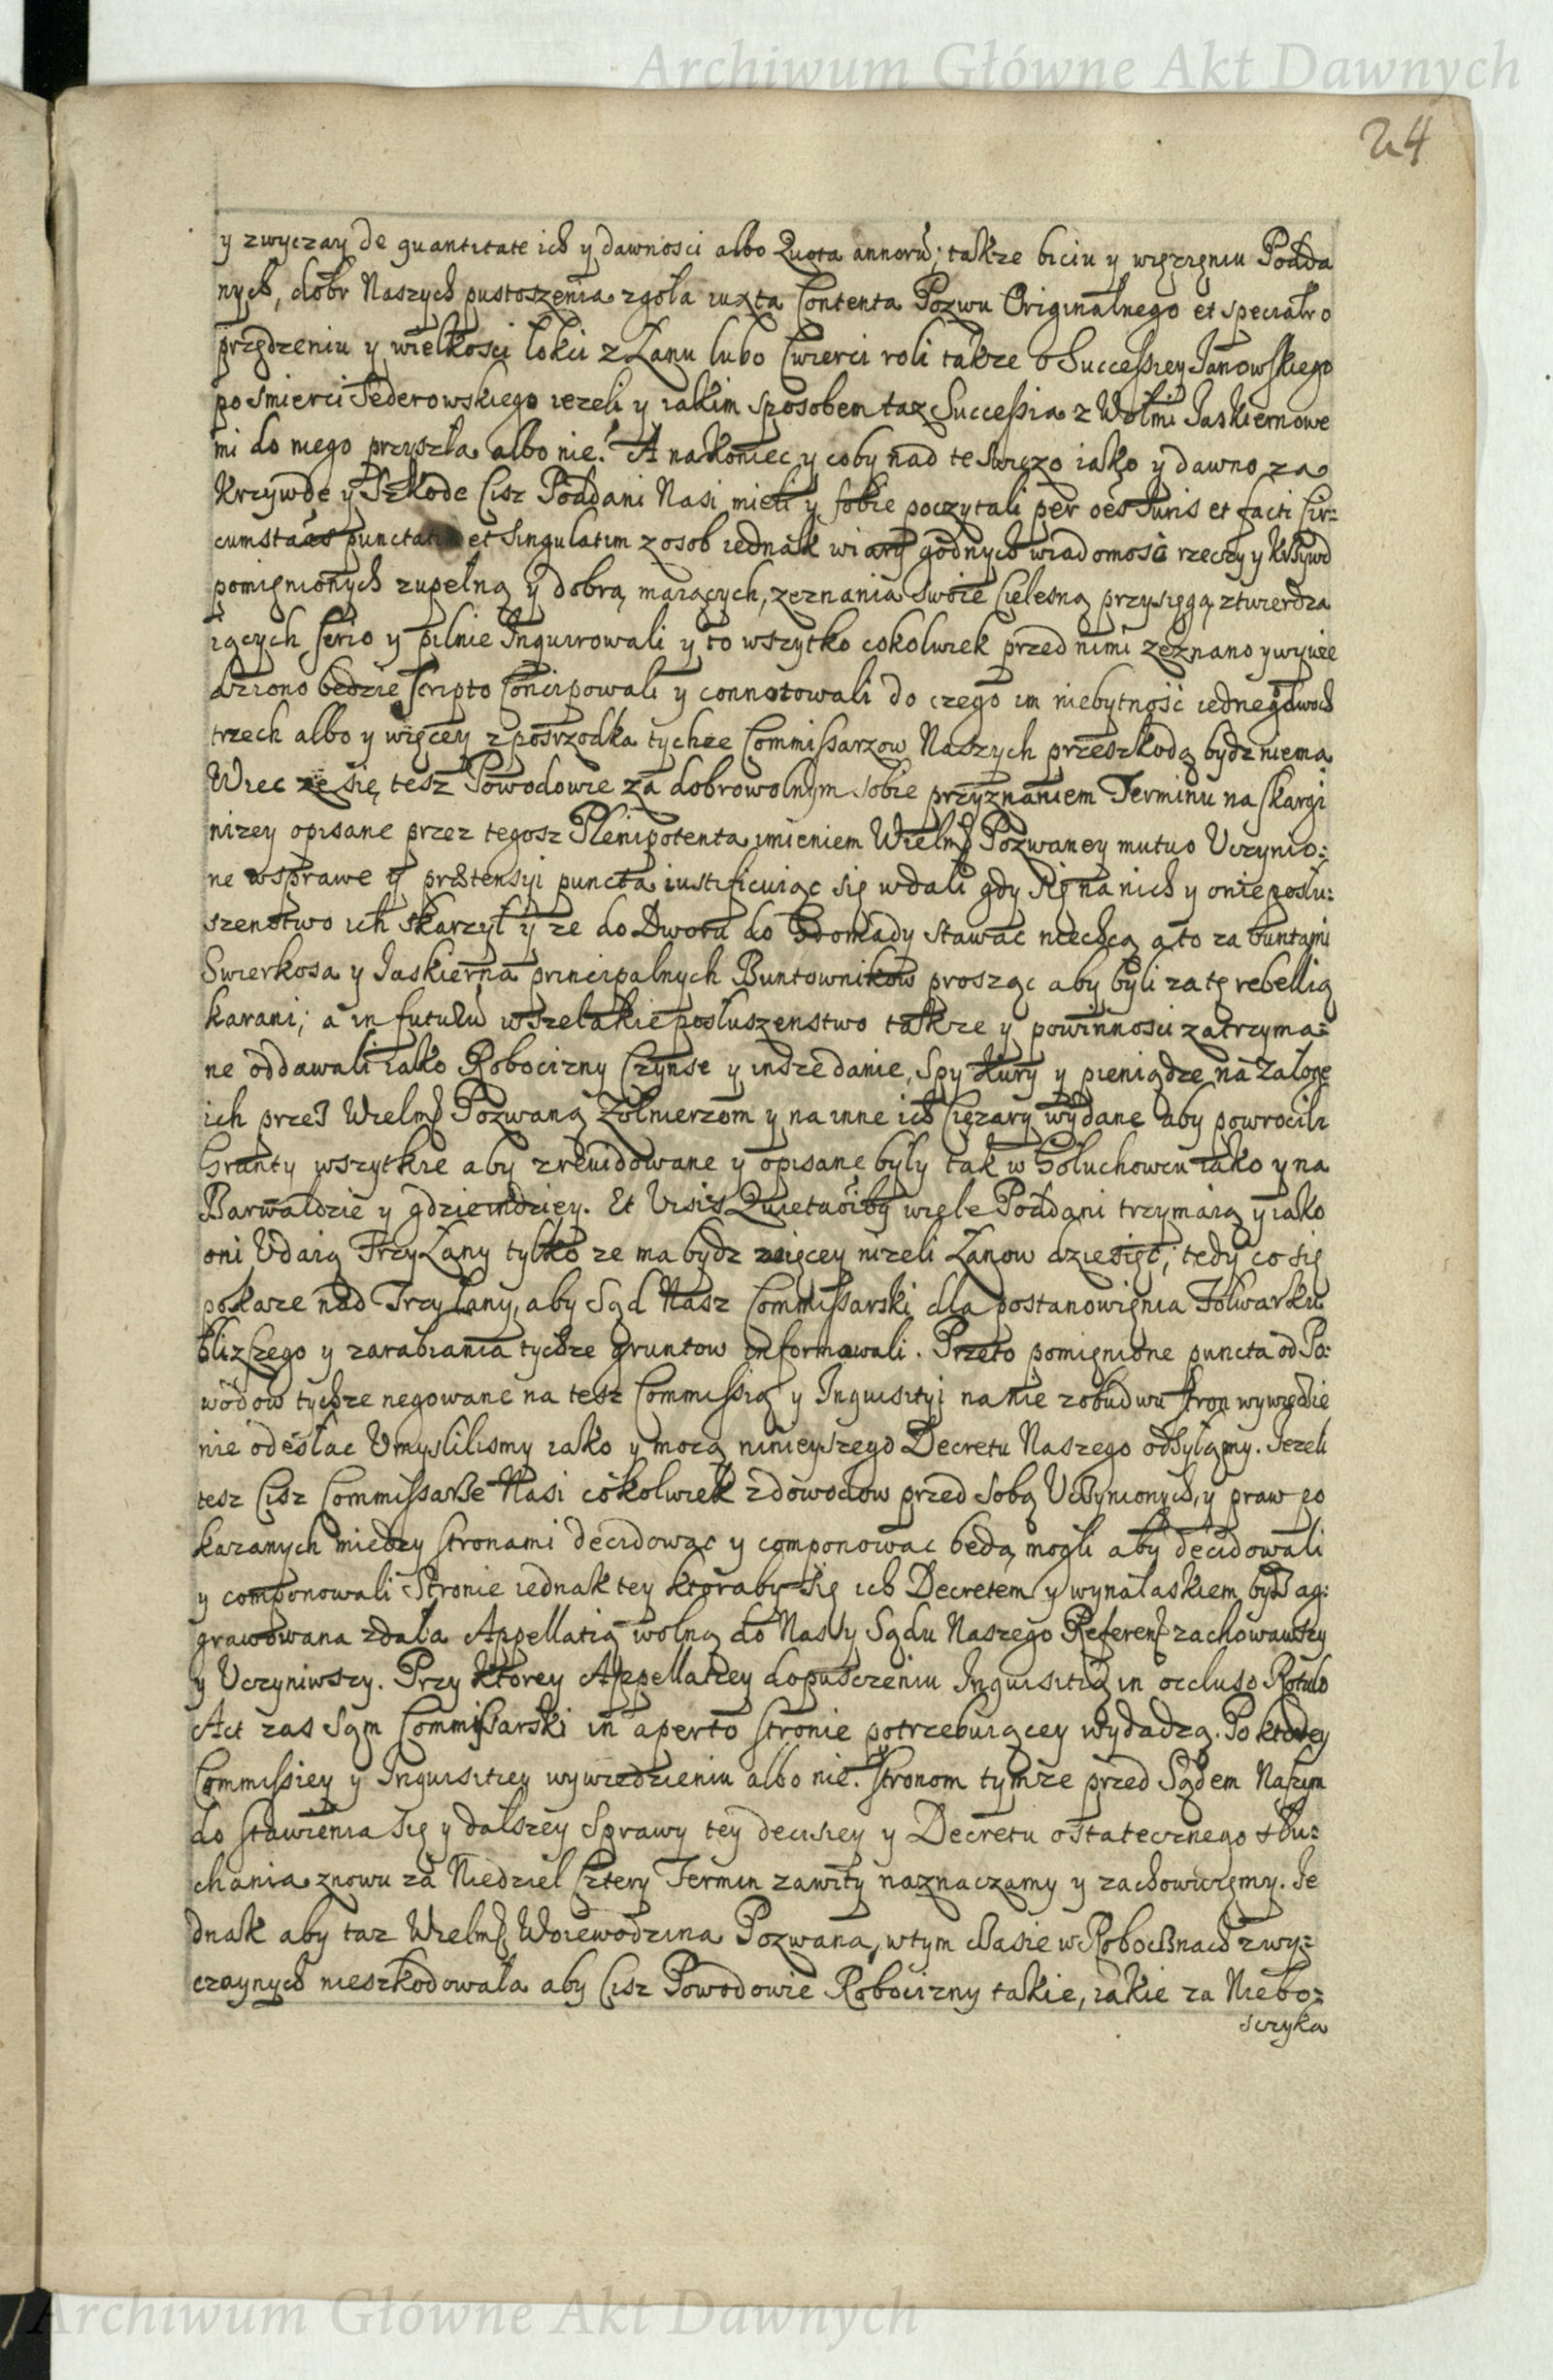 Archiwum Główne Akt Dawnych
24
y zwyczay de quantitate ich y dawnosci albo Quota annorū; takze biciu y więzięniu Podda
nych, dobr Naszych pustoszenia zgoła iuxta Contenta Pozwu Originalnego et special. o
przędzeniu y wielkosci łokci z Łanu lubo Cwierci roli takze o Successiey Janowskiego
po smierci Federowskiego iezeli y iakim sposobem taz Successia z Wołmi Jaskiernowe
mi do niego przyszła albo nie. A nakoniec y coby nad te swiezo iako y dawno za
Krzywdę y Szkode Cisz Poddani Nasi mieli y sobie poczytali per oēs Juris et facti Cir=
cumstāas punctatim et singulatim z osob iednak wiary godnych wiadomosc rzeczy y Krzywd
pomięnionych zupełną y dobrą maiących, zeznania swoie Cielesną przysięgą ztwierdza
iących serio y pilnie Inquirowali y to wszytko cokolwiek przed nimi zeznano y wywie
dziono będzie scripto Concipowali y connotowali do czego im niebytność iednego dwoch
trzech albo y więcey z posrzodka tychze Commissarzow Naszych przeszkodą bydz niema
Wiec ze się tesz Powodowie za dobrowolnym sobie przyznaniem Terminu na skargi
nizey opisane przez tegosz Plenipotenta imieniem Wielmz Pozwaney mutuo Uczynio=
ne w sprawe y prętensyi puncta iustificuiąc się wdali gdy się na nich y o nieposłu=
szenstwo ich skarzył y ze do Dworu do Gromady stawac niechcą a to za buntami
Swierkosa y Jaskierna principalnych Buntownikow prosząc aby byli za tę rebellią
karani; a in futurū wszelakie posłuszenstwo takze y powinnosci zatrzyma=
ne oddawali iako Robocizny Czynse y insze danie, Spy Kury y pieniądze na Załogę
ich przez Wielmz Pozwaną Zołnierzom y na inne ich Cięzary wydane aby powrocili
Grunty wszytkie aby zrewidowane y opisane były tak w Goluchowcu iako y na
Barwałdzie y gdzieindziey. Et Visis Quietaōibg wiele Poddani trzymaią y iako
oni Udaią Trzy Łany tylko ze ma bydz więcey nizeli Łanow dziesięć; tedy co się
pokaze nad Trzy Łany, aby Sąd Nasz Commissarski dla postanowięnia Folwarku
blizszego y zarabiania tychze gruntow informowali. Przeto pomięnione puncta od Po=
wodow tychze negowane na tesz Commissią y Inquisityi na nie z obudwu stron wywiedzie
nie odesłac Umyslilismy iako y mocą ninieyszego Decretu Naszego odsyłamy. Jezeli
tesz Cisz Commissarze Nasi cokolwiek z dowodow przed sobą Uczynionych, y praw po
kazanych miedzy stronami decidowac y componowac będą mogli aby decidowali
y componowali Stronie iednak tey ktoraby się ich Decretem y wynalaskiem bydz ag=
grawowana zdała Appellatią wolną do Nas y Sądu Naszego Referen zachowawszy
y Uczyniwszy. Przy ktorey Appellatiey dopusczeniu Inquisitią in occluso Rotulo
Act zas sąm Commissarski in aperto stronie potrzebuiącey wydadzą. Po ktorey
Commissiey y Inquisitiey wywiedzieniu albo nie. Stronom tymze przed Sądem Naszym
do stawienia się y dalszey sprawy tey decisiey y Decretu ostatecznego słu=
chania znowu za Niedziel Cztery Termin zawity naznaczamy y zachowuięmy. Je
dnak aby taz Wielmz Woiewodzina Pozwana, w tym czasie w Robociznach zwy=
czaynych nieszkodowała aby Cisz Powodowie Robocizny takie, iakie za Niebo=
sczyka
Archiwum Główne Akt Dawnych